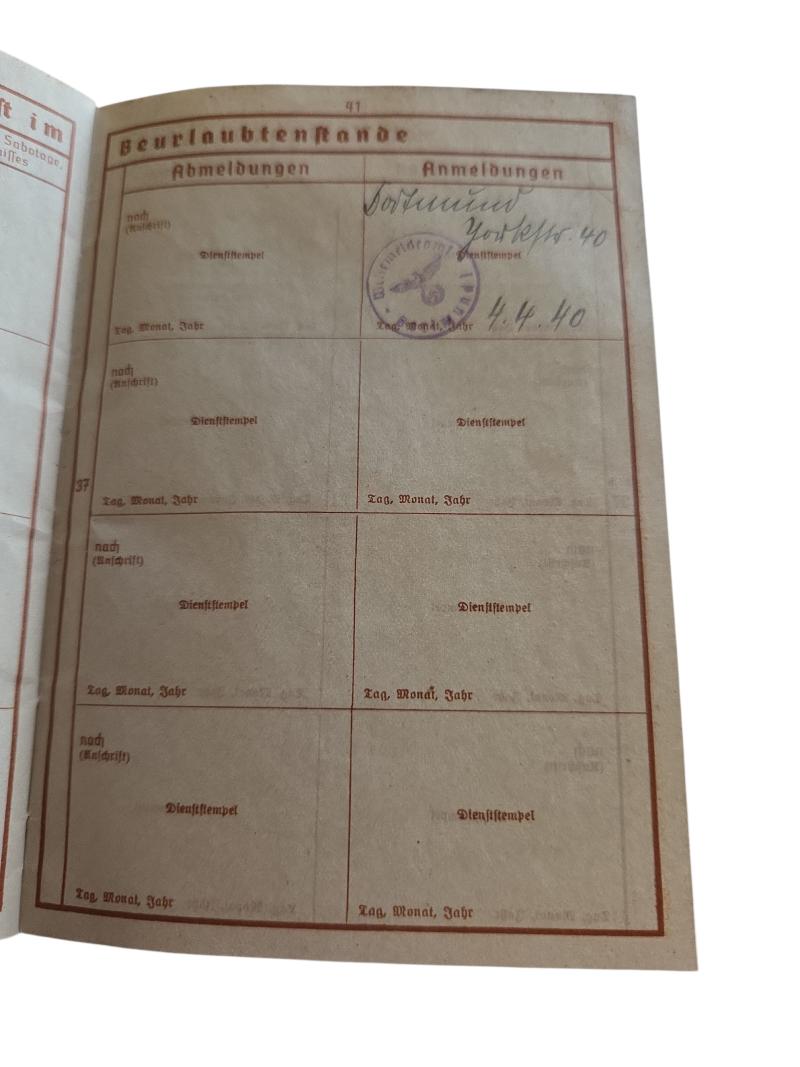 41
st im
Sabotage,
nisses
Beurlaubtenstande
Abmeldungen
Anmeldungen
nach
(Anschrift)
Dienststempel
Tag, Monat, Jahr
Dortmund
Yorkstr. 40
Dienststempel
Wehrmeldeamt
Dortmund
Tag, Monat, Jahr
4.4.40
nach
(Anschrift)
Dienststempel
Tag, Monat, Jahr
Dienststempel
Tag, Monat, Jahr
37
nach
(Anschrift)
Dienststempel
Tag, Monat, Jahr
Dienststempel
Tag, Monat, Jahr
nach
(Anschrift)
Dienststempel
Tag, Monat, Jahr
Dienststempel
Tag, Monat, Jahr